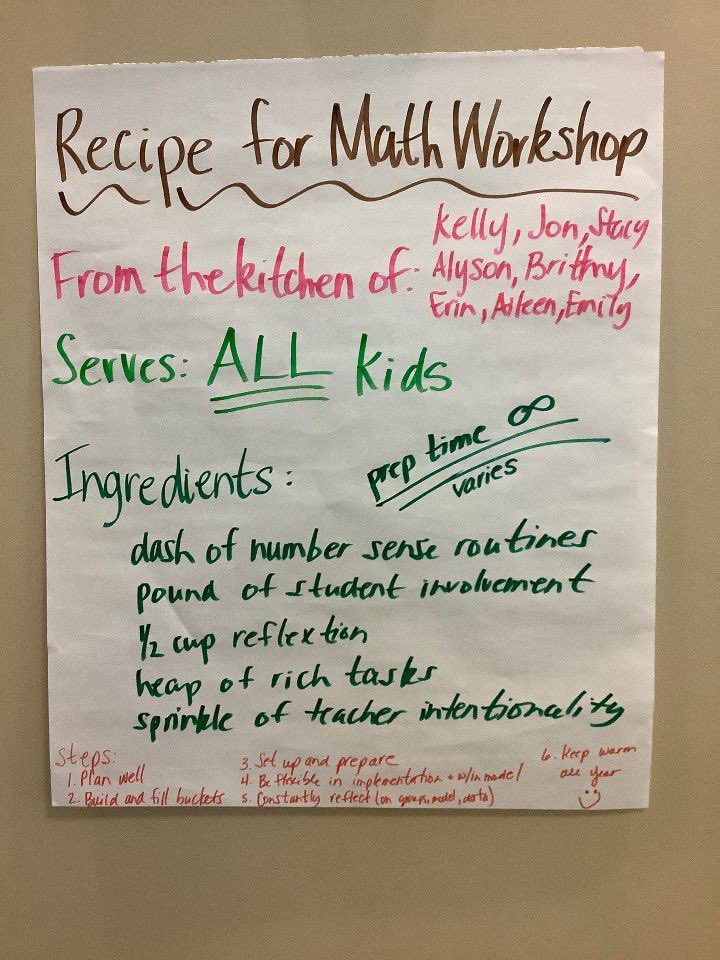 Recipe for Math Workshop
From the kitchen of: Kelly, Jon, Stacy
Alyson, Brittny,
Erin, Aileen, Emily
Serves: ALL kids
prep time ∞
varies
Ingredients:
dash of number sense routines
pound of student involvement
1/2 cup reflextion
heap of rich tasks
sprinkle of teacher intentionality
Steps:
1. Plan well
2. Build and fill buckets
3. Set up and prepare
4. Be flexible in implementation + w/in model
5. Constantly reflect (on groups, model, data)
6. Keep warm
all year